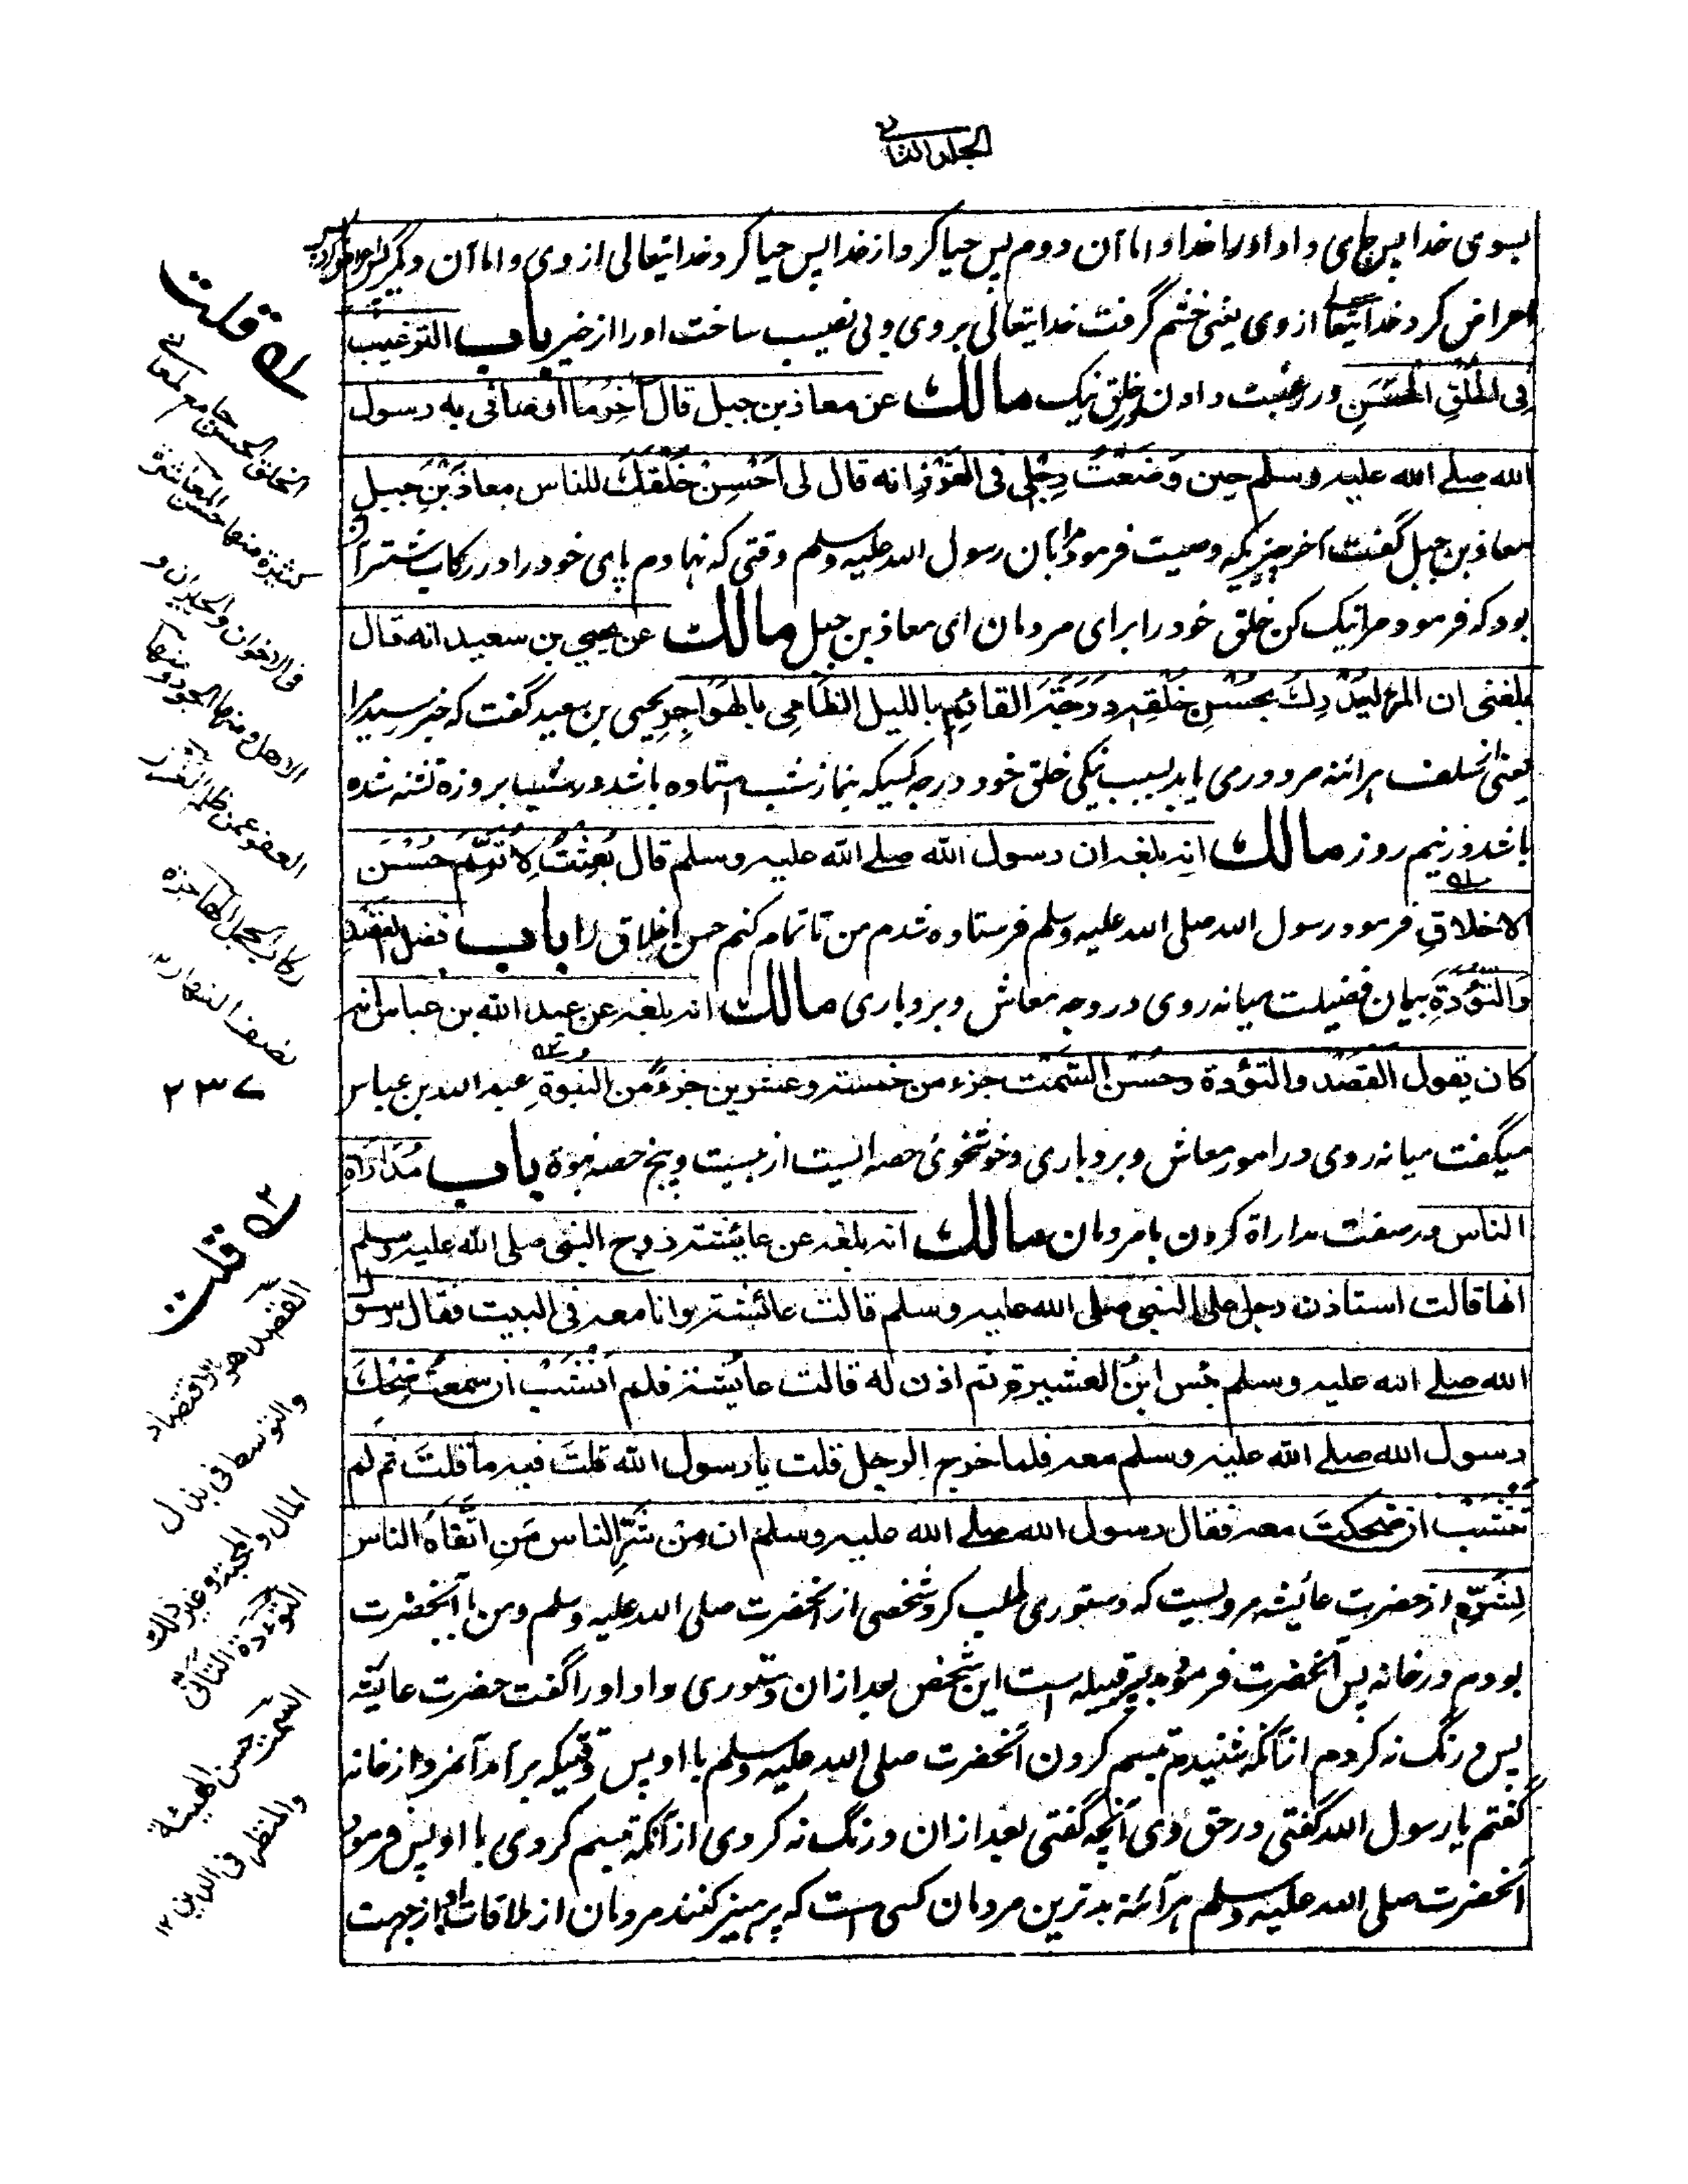 الجلد الثانی
بسوی خدا پس جای داد اورا خدا و اما آن دوم پس حیا کرد از خدا پس حیا کرد خدایتعالی از وی و اما آن دیگر پس اعراض کرد پس
اعراض کرد خدایتعالی از وی یعنی خشم گرفت خدایتعالی بر وی و بی نصیب ساخت اورا از خیر باب الترغیب
فی الخُلُقِ الحَسَنِ در رغبت دادن در خلق نیک مالك عن معاذ بن جبل قال آخِرُ مَا أوصانی به رسول
الله صلے الله علیه وسلم حین وَضَعْتُ رِجْلِی فی الغَرْزِ انه قال لی اَحْسِنْ خُلُقَكَ للناس معاذَ بْنَ جبل
معاذ بن جبل گفت آخر چیزیکه وصیت فرمود مرا بآن رسول الله صلی الله علیه وسلم وقتی که نهادم پای خود را در رکاب شتر آن
بود که فرمود مرا نیک کن خلق خود را برای مردمان ای معاذ بن جبل مالك عن یحیی بن سعید انه قال
بلغنی ان المرأ لیُدْرِكُ بحُسْنِ خُلُقِه دَرَجَةَ القائِمِ باللیل الظامِی بالهَوَاجِرِ یحیی بن سعید گفت که خبر رسید مرا
یعنی از سلف هرآئنه مرد در می یابد بسبب نیکی خلق خود درجه کسیکه بنماز شب استاده باشد در شب بروزه تشنه شده
باشد در نیم روز مالك انه بلغه ان رسول الله صلے الله علیه وسلم قال بُعِثْتُ لِاُتَمِّمَ حُسْنَ
الاخلاقِ فرمود رسول الله صلی الله علیه وسلم فرستاده شدم من تا تمام کنم حسن اخلاق را باب فضل القصدِ
وَالتُّؤَدَةِ بیان فضیلت میانه روی در وجه معاش و بردباری مالك انه بلغه عن عبد الله بن عباس انه
کان یقول القَصْدُ والتؤدة وحُسْنُ السَّمْت جزء من خمسة وعشرین جزءً من النبوةِ عبد الله بن عباس
میگفت میانه روی در امور معاش و بردباری و خوشخوئی حصه ایست از بیست و پنج حصه نبوة باب مُدَارَاةِ
الناس در صفت مداراة کردن با مردمان مالك انه بلغه عن عائشة زوج النبی صلی الله علیه وسلم
انها قالت استاذن رجل علی النبی صلی الله علیه وسلم قالت عائشة وانا معه فی البیت فقال رسول
الله صلے الله علیه وسلم بئس ابنُ العشیرةِ ثم اذن له قالت عائشة فلم اَنْشَبْ ان سمعتُ ضحك
رسول الله صلے الله علیه وسلم معه فلما خرج الرجل قلت یا رسول الله قلتَ فیه ما قلتَ ثم لم
تَنْشَبْ ان ضحكتَ معه فقال رسول الله صلے الله علیه وسلم ان مِنْ شَرِّ الناس مَنِ اتَّقاهُ الناس
لِشَرِّهِ از حضرت عائشه مرویست که دستوری طلب کرد شخصی از آنحضرت صلی الله علیه وسلم و من با آنحضرت
بودم در خانه پس آنحضرت فرمود بد قبیله است این شخص بعد ازان دستوری داد اورا گفت حضرت عائشه
پس درنگ نه کردم ازآنکه شنیدم تبسم کردن آنحضرت صلی الله علیه وسلم با او پس وقتیکه برآمد آنمرد از خانه
گفتم یا رسول الله گفتی در حق وی آنچه گفتی بعد ازان درنگ نه کردی ازآنکه تبسم کردی با او پس فرمود
آنحضرت صلی الله علیه وسلم هرآئنه بدترین مردمان کسی است که پرهیز کنند مردمان از ملاقات او از جهت
۱ قلت
الخلق الحسن جامع لمعانی
کثیرة منها حسن المعاشرة
فی الاخوان والجیران و
الاهل ومنها الجود ومنها
العفو عمن ظلم
الهاجرة
نصف النهار ۱۲
۲۳۷
۲ قلت
القصد هو الاقتصاد
والتوسط فی بذل
المال والمحبة وغیر ذلك
التؤدة التأنی
السمت حسن الهیئة
والمنظر فی الدین ۱۲